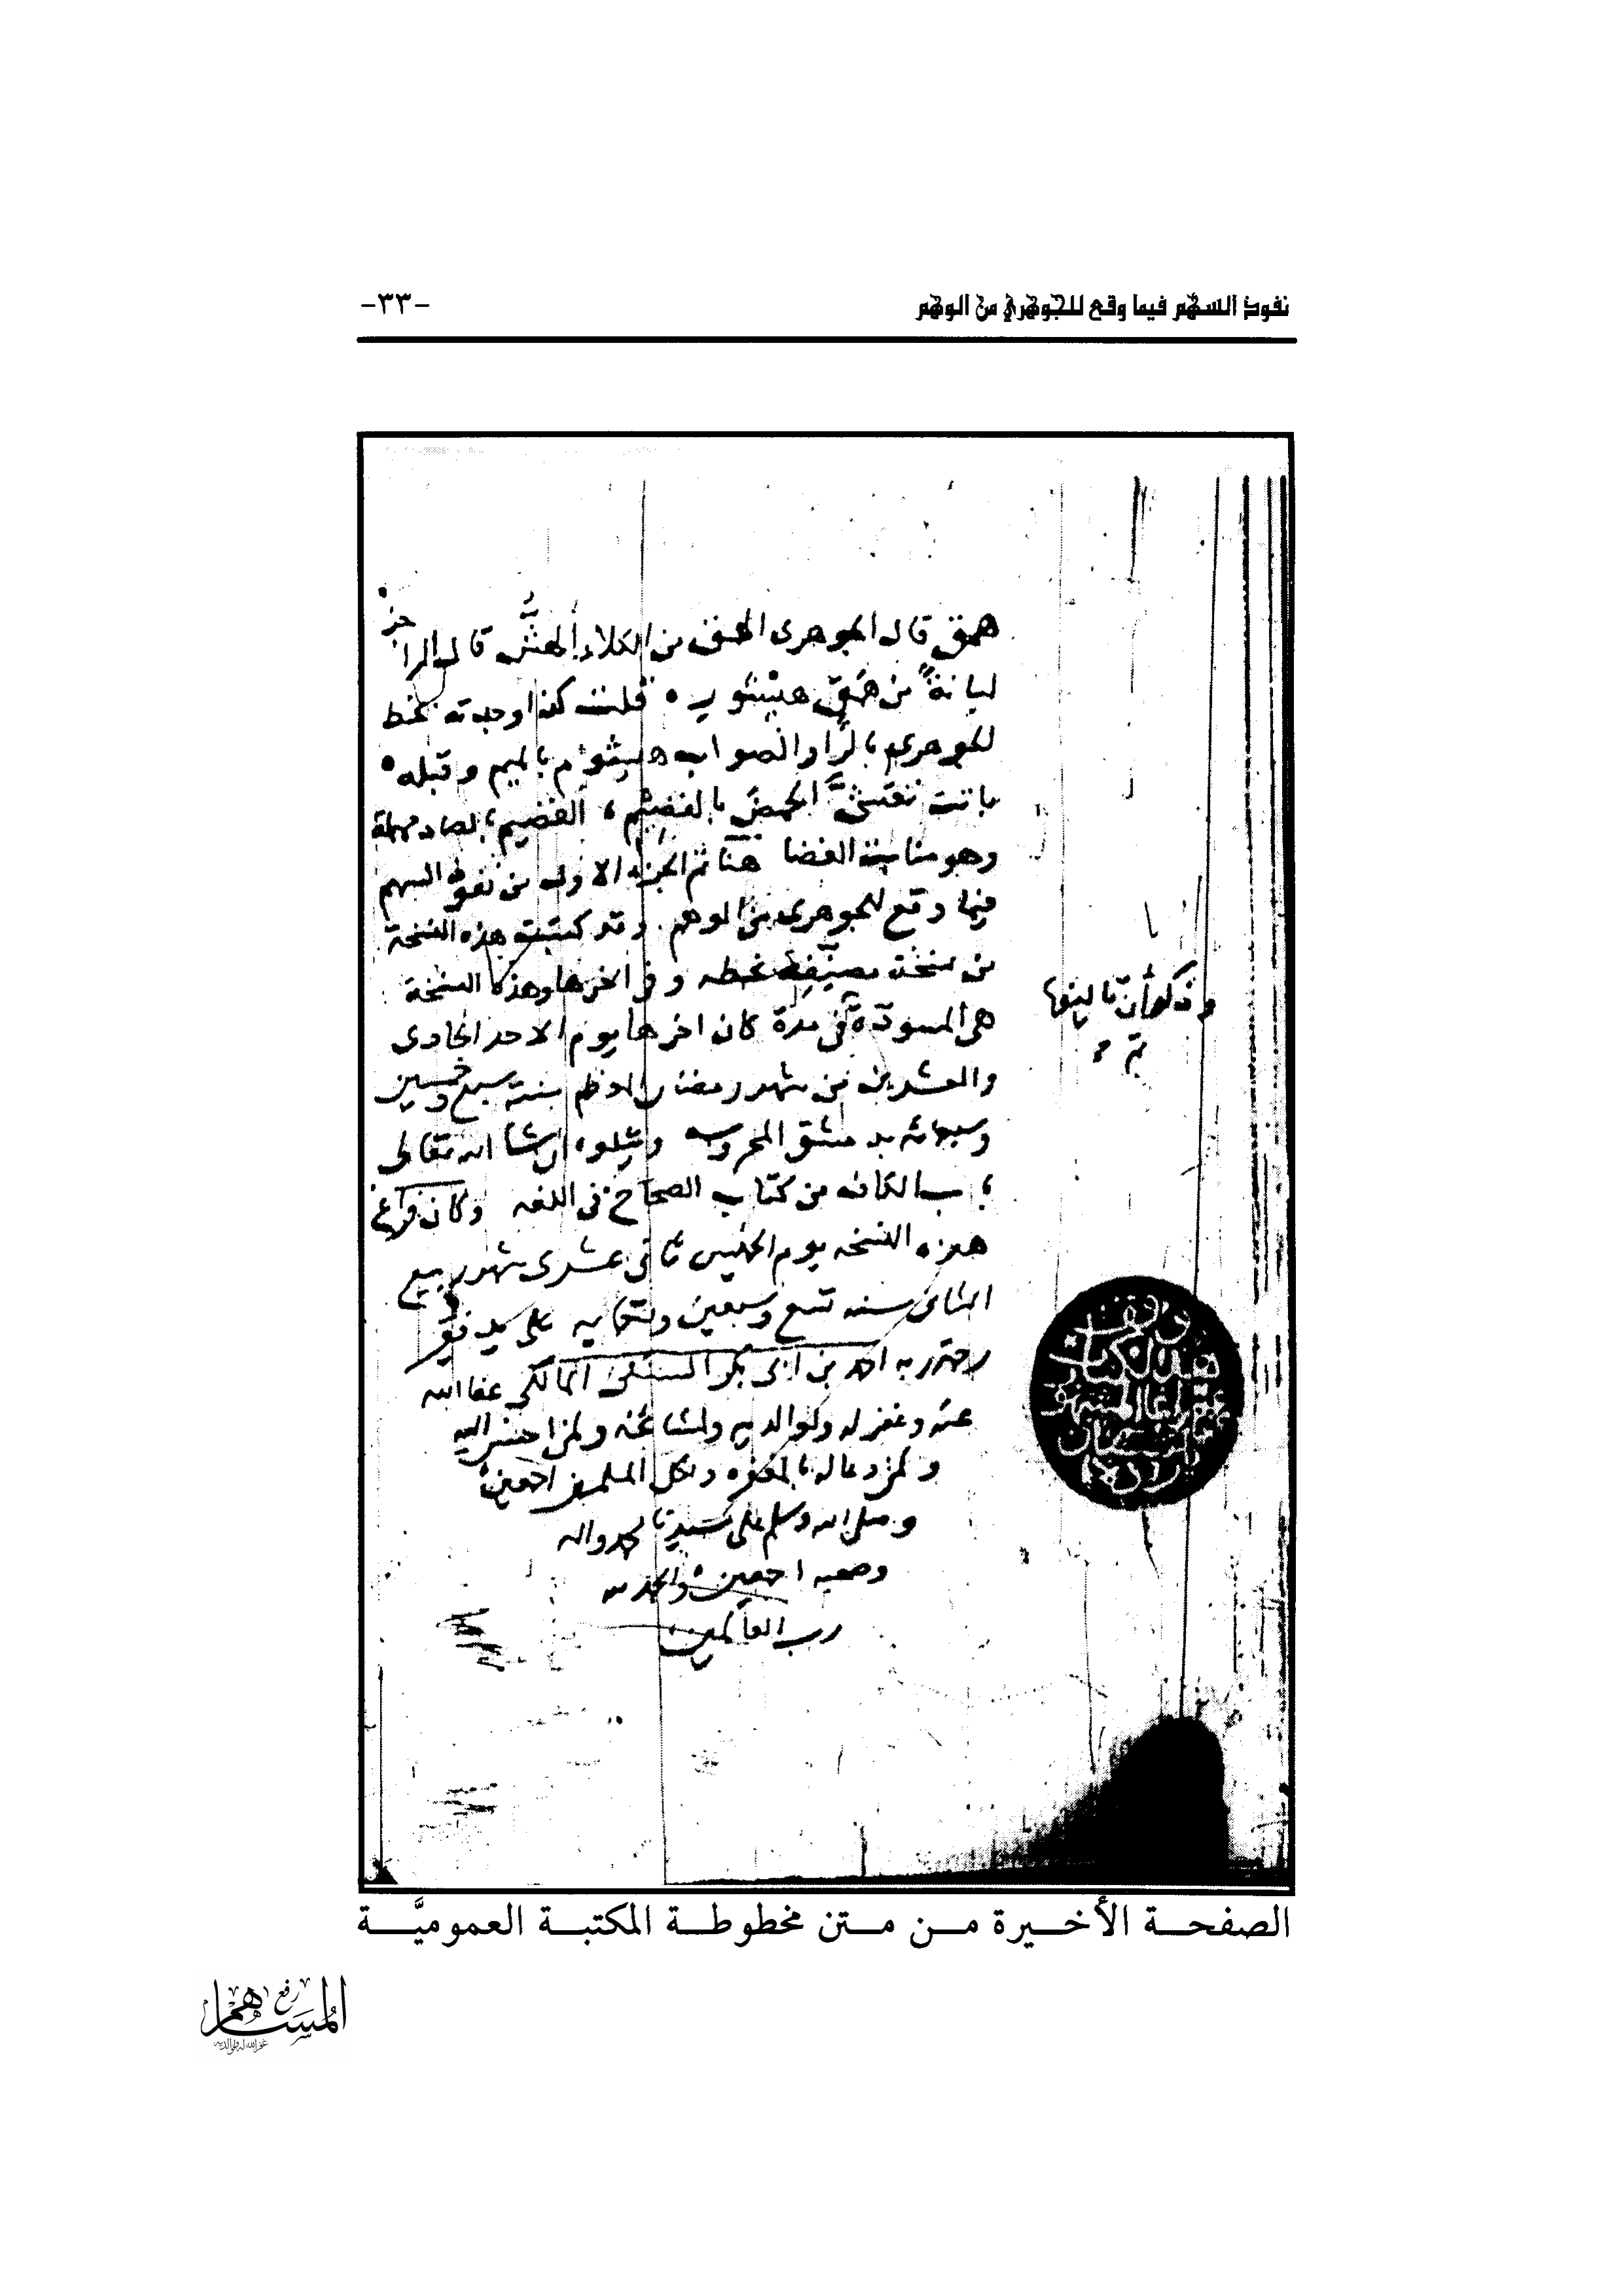 نفوذ السهم فيما وقع للجوهري من الوهم
-٣٣-
همق قال الجوهرى الهمق من الكلاء الهشّ قال الراجز
لبانةً من همق هيشور ٥ قلت كذا وجدته بخط
الجوهرى بالرّاء والصواب هيشوم بالميم وقبله ٥
باتت تعشى الحمض بالقضيم القصيم بالصاد مهملة
وهو منابت الغضا هنا تم الجزء الاول من نفوذ السهم
فيما وقع للجوهرى من الوهم وقد كتبت هذه النسخة
من نسخة مصنّفه بخطه وفى اخرها وهذه النسخة
هى المسودّة فى مدّة كان اخرها يوم الاحد الحادى
والعشرين من شهر رمضان المعظم سنة سبع وخمسين
وسبعمائه بدمشق المحروسه ويتلوه ان شا الله تعالى
باب الكاف من كتاب الصحاح فى اللغه وكان فراغ
هذه النسخه يوم الخميس ثانى عشرى شهر ربيع
الثانى سنه تسع وسبعين وثمانمايه على يد فقير
رحمة ربه احمد بن ابى بكر المالكى عفا الله
عنه وغفر له ولوالديه ولمشائخه ولمن احسن اليه
ولمن دعا له بالمغفره ولكل المسلمين اجمعين
وصلى الله وسلم على سيدنا محمد واله
وصحبه اجمعين ٥ والحمد لله
رب العالمين
وقف
هذا الكتاب
الصفحة الأخيرة من متن مخطوطة المكتبة العموميَّة
رفع
المساهم
غفر الله له ولوالديه